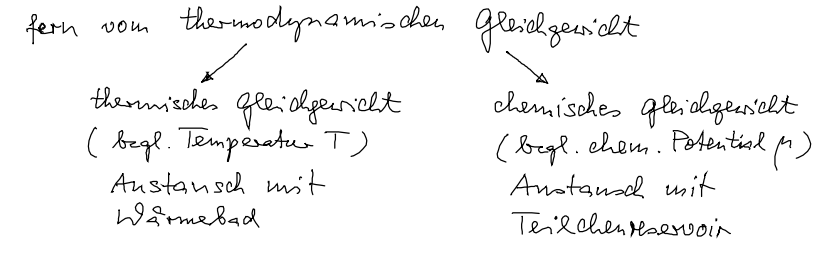 fern vom thermodynamischen Gleichgewicht
thermisches Gleichgewicht
(bzgl. Temperatur T)
Austausch mit
Wärmebad
chemisches Gleichgewicht
(bzgl. chem. Potential μ)
Austausch mit
Teilchenreservoir